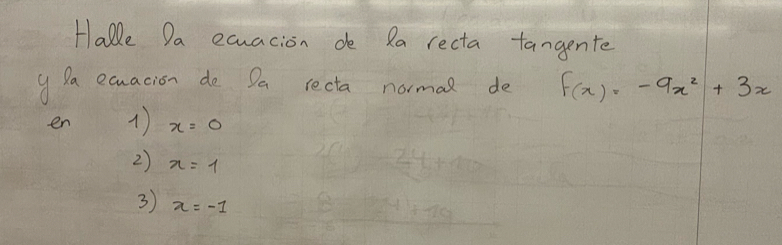 Halle la ecuación de la recta tangente
y la ecuación de la recta normal de f(x) = -9x² + 3x
en 1) x = 0
2) x = 1
3) x = -1